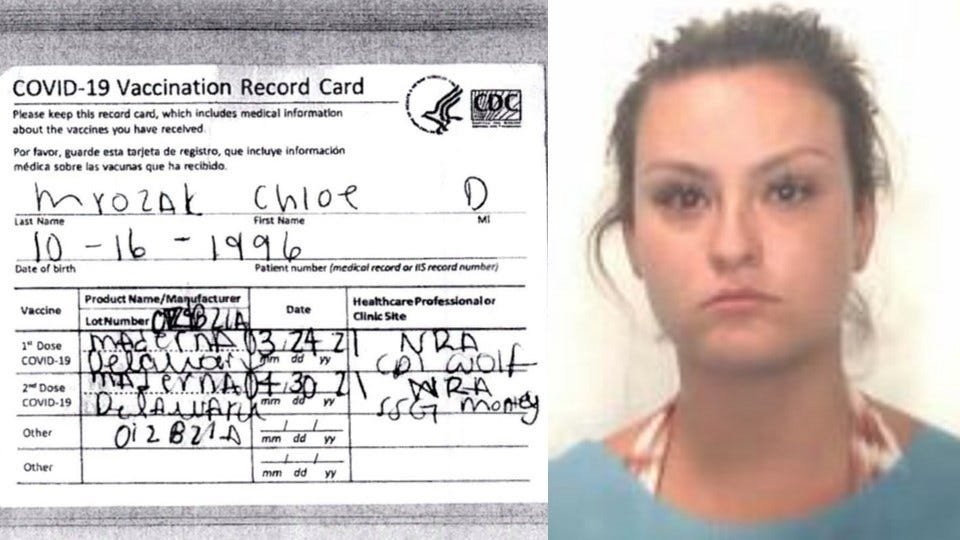 COVID-19 Vaccination Record Card
Please keep this record card, which includes medical information
about the vaccines you have received.
Por favor, guarde esta tarjeta de registro, que incluye información
médica sobre las vacunas que ha recibido.
CDC
Mrozak Chloe D
Last Name First Name MI
10-16-1996
Date of birth Patient number (medical record or IIS record number)
Vaccine Product Name/Manufacturer Date Healthcare Professional or
Lot Number Clinic Site
1st Dose MAdernA 03 24 21 NRA
COVID-19 mm dd yy CPL Wolf
2nd Dose MAdernA 04 30 21 NRA
COVID-19 mm dd yy SSG Montey
Other 012B21A
mm dd yy
Other
mm dd yy